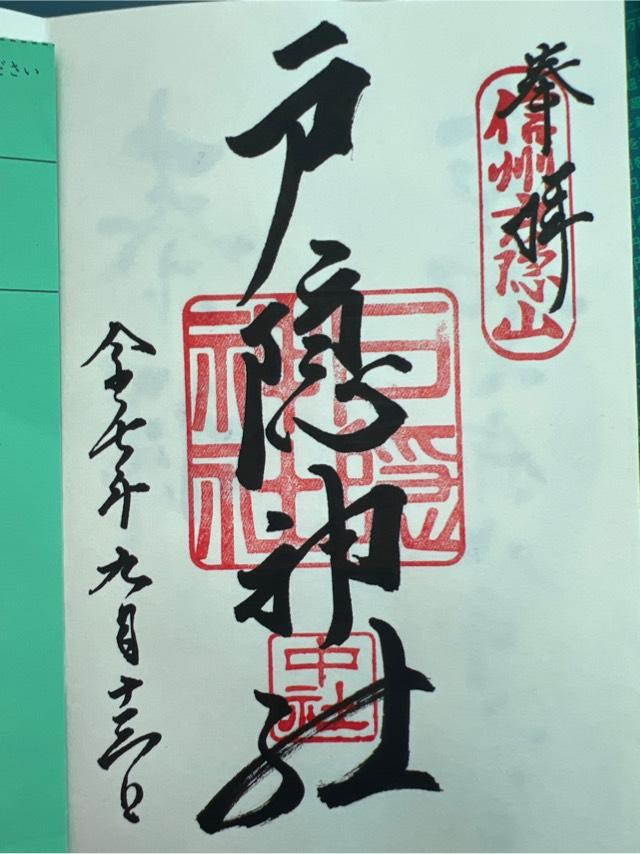 奉拝
信州戸隠山
戸隠神社
戸隠
神社
中社
令七年九月十三日
ださい